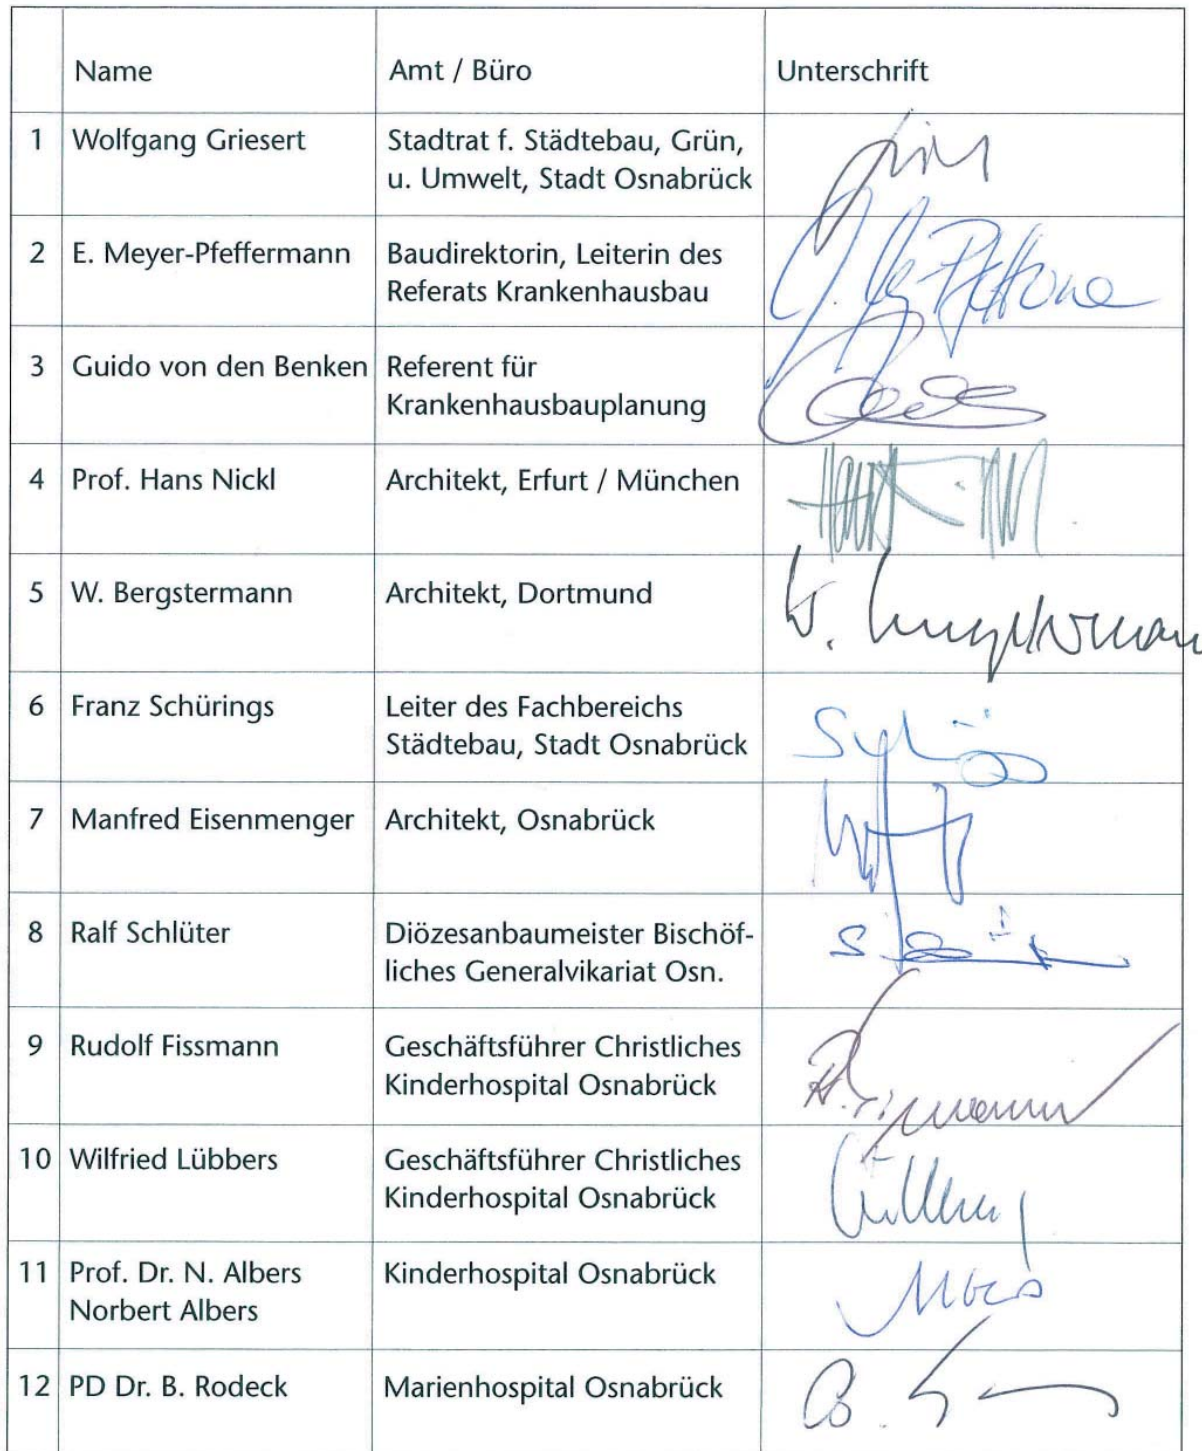 Name Amt / Büro Unterschrift
1 Wolfgang Griesert Stadtrat f. Städtebau, Grün,
u. Umwelt, Stadt Osnabrück
2 E. Meyer-Pfeffermann Baudirektorin, Leiterin des
Referats Krankenhausbau
3 Guido von den Benken Referent für
Krankenhausbauplanung
4 Prof. Hans Nickl Architekt, Erfurt / München
5 W. Bergstermann Architekt, Dortmund
6 Franz Schürings Leiter des Fachbereichs
Städtebau, Stadt Osnabrück
7 Manfred Eisenmenger Architekt, Osnabrück
8 Ralf Schlüter Diözesanbaumeister Bischöf-
liches Generalvikariat Osn.
9 Rudolf Fissmann Geschäftsführer Christliches
Kinderhospital Osnabrück
10 Wilfried Lübbers Geschäftsführer Christliches
Kinderhospital Osnabrück
11 Prof. Dr. N. Albers Kinderhospital Osnabrück
Norbert Albers
12 PD Dr. B. Rodeck Marienhospital Osnabrück